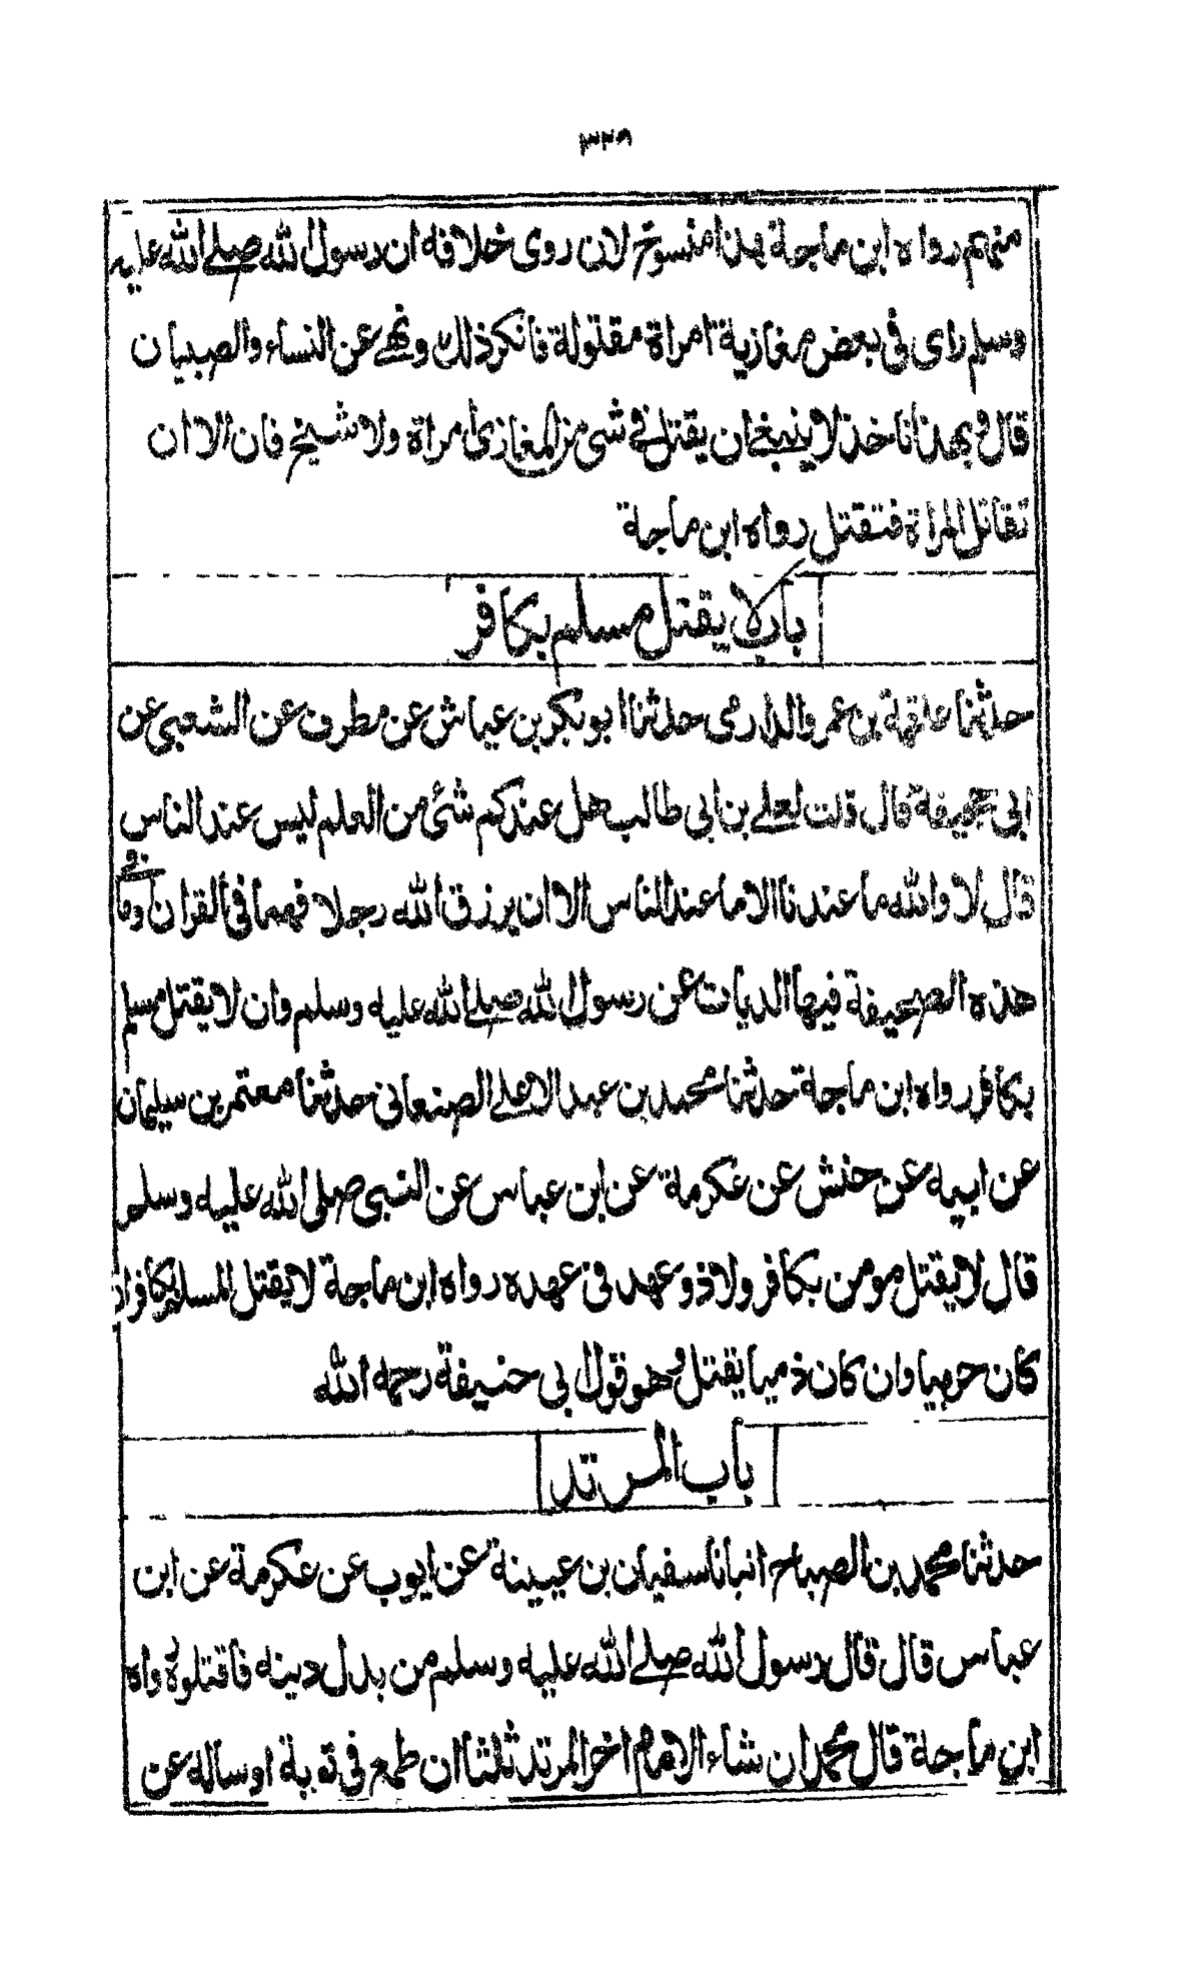 ٣٢٦
منهم رواه ابن ماجة بهذا منسوخ لان روى خلافه ان رسول الله صلے الله عليه
وسلم راى فى بعض مغازية امراة مقتولة فانكر ذلك ونهے عن النساء والصبيان
قال وبهذا ناخذ لا ينبغے ان يقتل فے شى من المغازى امراة ولا شيخ فان الا ان
تقاتل المراة فتقتل رواه ابن ماجة
باب لا يقتل مسلم بكافر
حدثنا علقمة بن عمرو الدارمى حدثنا ابو بكر بن عياش عن مطرف عن الشعبى عن
ابى جحيفة قال قلت لعلے بن ابى طالب هل عندكم شئ من العلم ليس عند الناس
قال لا والله ما عندنا الا ما عند الناس الا ان يرزق الله رجلا فهما فى القران او ما فے
هذه الصحيفة فيها الديات عن رسول الله صلے الله عليه وسلم وان لا يقتل مسلم
بكافر رواه ابن ماجة حدثنا محمد بن عبد الاعلے الصنعانى حدثنا معتمر بن سليمان
عن ابيه عن حنش عن عكرمة عن ابن عباس عن النبى صلى الله عليه وسلم
قال لا يقتل مومن بكافر ولا ذو عهد فى عهده رواه ابن ماجة لا يقتل المسلم بكافر ان
كان حربيا وان كان ذميا يقتل وهو قول بى حنيفة رحمه الله
باب المرتد
حدثنا محمد بن الصباح انبانا سفيان بن عيينة عن ايوب عن عكرمة عن ابن
عباس قال قال رسول الله صلے الله عليه وسلم من بدل دينه فاقتلوه رواه
ابن ماجة قال محمد ان شاء الامام اخر المرتد ثلثا ان طمع فى توبة او ساله عن